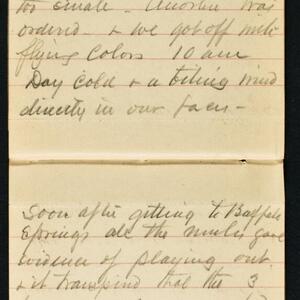 too small - Another was
ordered - & we got off with
flying Colors 10 am
Day Cold & a biting wind
directly in our faces -
Soon after getting to Buffalo
Springs all the mules gave
evidence of playing out
& it transpired that the 3